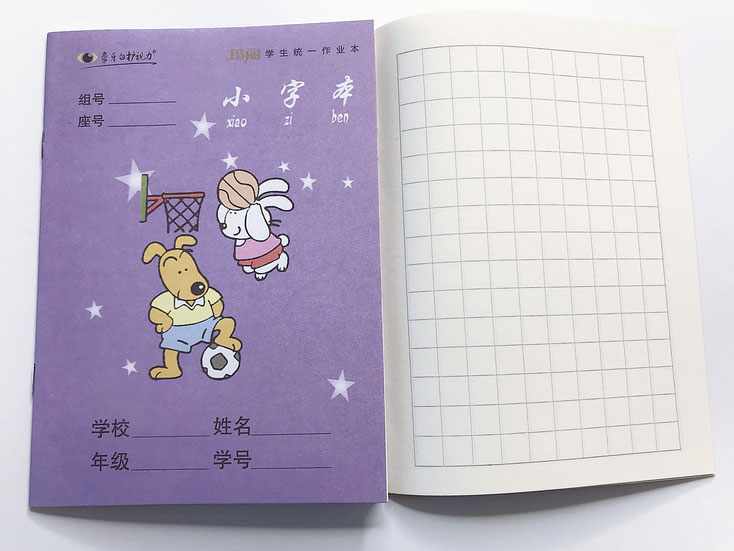 象牙白护视力®
玛丽 学生统一作业本
组号
座号
小字本
xiao zi ben
学校 姓名
年级 学号